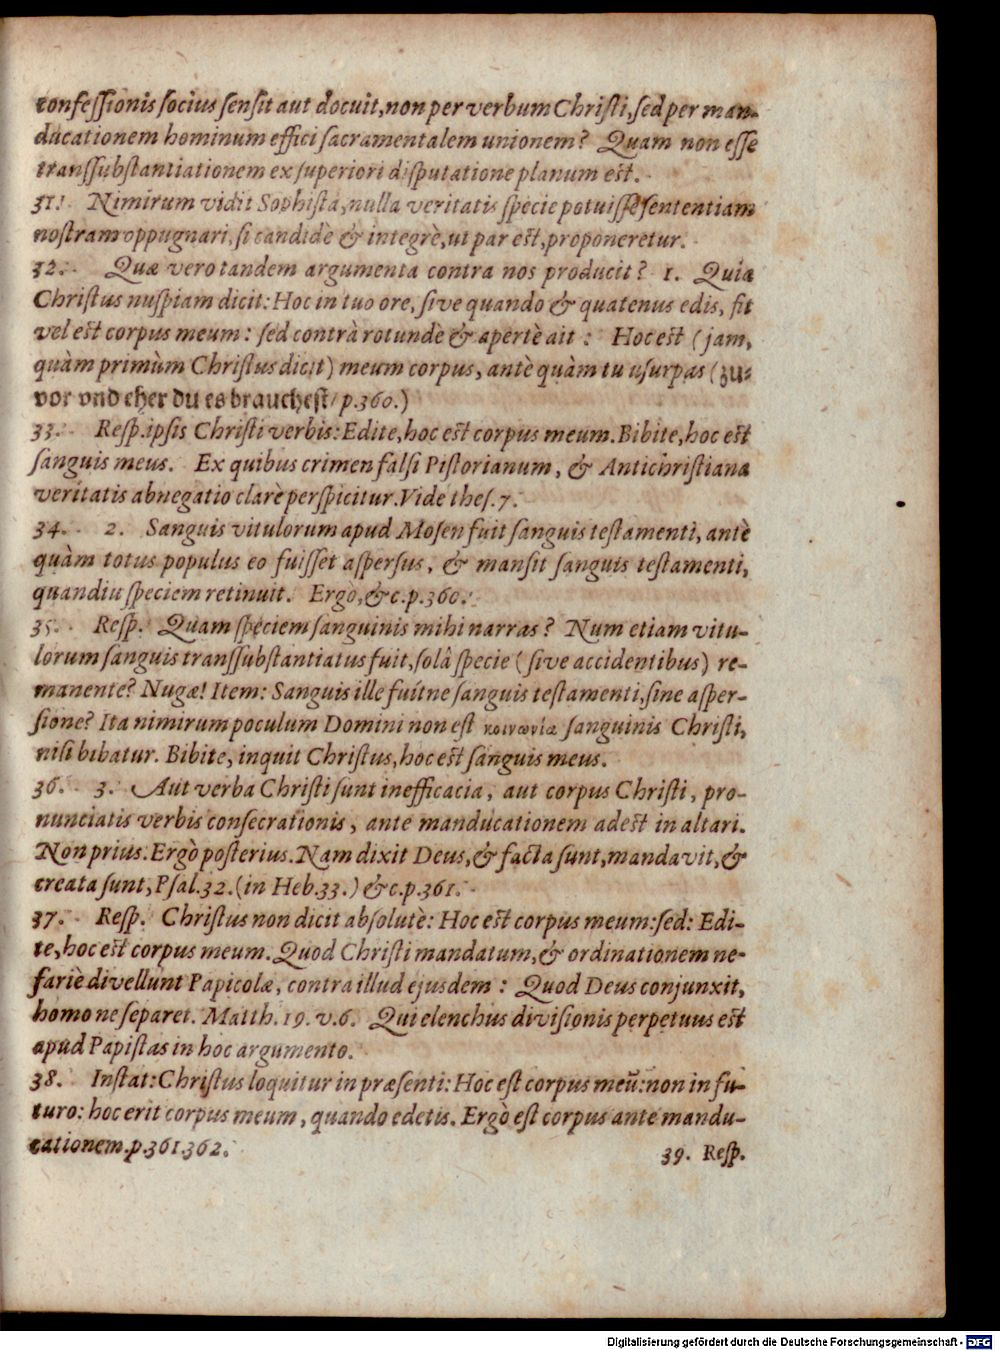 confeſſionis ſocius ſenſit aut docuit, non per verbum Chriſti, ſed per man-
ducationem hominum effici ſacramentalem unionem? Quam non eſſe
transſubſtantiationem ex ſuperiori diſputatione planum eſt.
31. Nimirum vidit Sophiſta, nulla veritatis ſpecie potuiſſe ſententiam
noſtram oppugnari, ſi candidè & integrè, ut par eſt, proponeretur.
32. Quæ vero tandem argumenta contra nos producit? 1. Quia
Chriſtus nuſpiam dicit: Hoc in tuo ore, ſive quando & quatenus edis, fit
vel eſt corpus meum: ſed contrà rotundè & apertè ait: Hoc eſt (jam,
quàm primùm Chriſtus dicit) meum corpus, antè quàm tu uſurpas (zu-
vor vnd eher du es braucheſt / p.360.)
33. Reſp. ipſis Chriſti verbis: Edite, hoc eſt corpus meum. Bibite, hoc eſt
ſanguis meus. Ex quibus crimen falſi Piſtorianum, & Antichriſtiana
veritatis abnegatio clarè perſpicitur. Vide theſ. 7.
34. 2. Sanguis vitulorum apud Moſen fuit ſanguis teſtamenti, antè
quàm totus populus eo fuiſſet aſperſus, & manſit ſanguis teſtamenti,
quandiu ſpeciem retinuit. Ergò, &c. p.360.
35. Reſp. Quam ſpeciem ſanguinis mihi narras? Num etiam vitu-
lorum ſanguis transſubſtantiatus fuit, ſolâ ſpecie (ſive accidentibus) re-
manente? Nugæ! Item: Sanguis ille fuítne ſanguis teſtamenti, ſine aſper-
ſione? Ita nimirum poculum Domini non eſt κοινωνία ſanguinis Chriſti,
niſi bibatur. Bibite, inquit Chriſtus, hoc eſt ſanguis meus.
36. 3. Aut verba Chriſti ſunt inefficacia, aut corpus Chriſti, pro-
nunciatis verbis conſecrationis, ante manducationem adeſt in altari.
Non prius. Ergò poſterius. Nam dixit Deus, & facta ſunt, mandavit, &
creata ſunt, Pſal. 32. (in Heb. 33.) &c. p.361.
37. Reſp. Chriſtus non dicit abſolutè: Hoc eſt corpus meum: ſed: Edi-
te, hoc eſt corpus meum. Quod Chriſti mandatum, & ordinationem ne-
fariè divellunt Papicolæ, contra illud ejusdem: Quod Deus conjunxit,
homo ne ſeparet. Matth. 19. v. 6. Qui elenchus diviſionis perpetuus eſt
apud Papiſtas in hoc argumento.
38. Inſtat: Chriſtus loquitur in præſenti: Hoc eſt corpus meũ: non in fu-
turo: hoc erit corpus meum, quando edetis. Ergò eſt corpus ante mandu-
cationem. p.361.362.
39. Reſp.
Digitalisierung gefördert durch die Deutsche Forschungsgemeinschaft - DFG